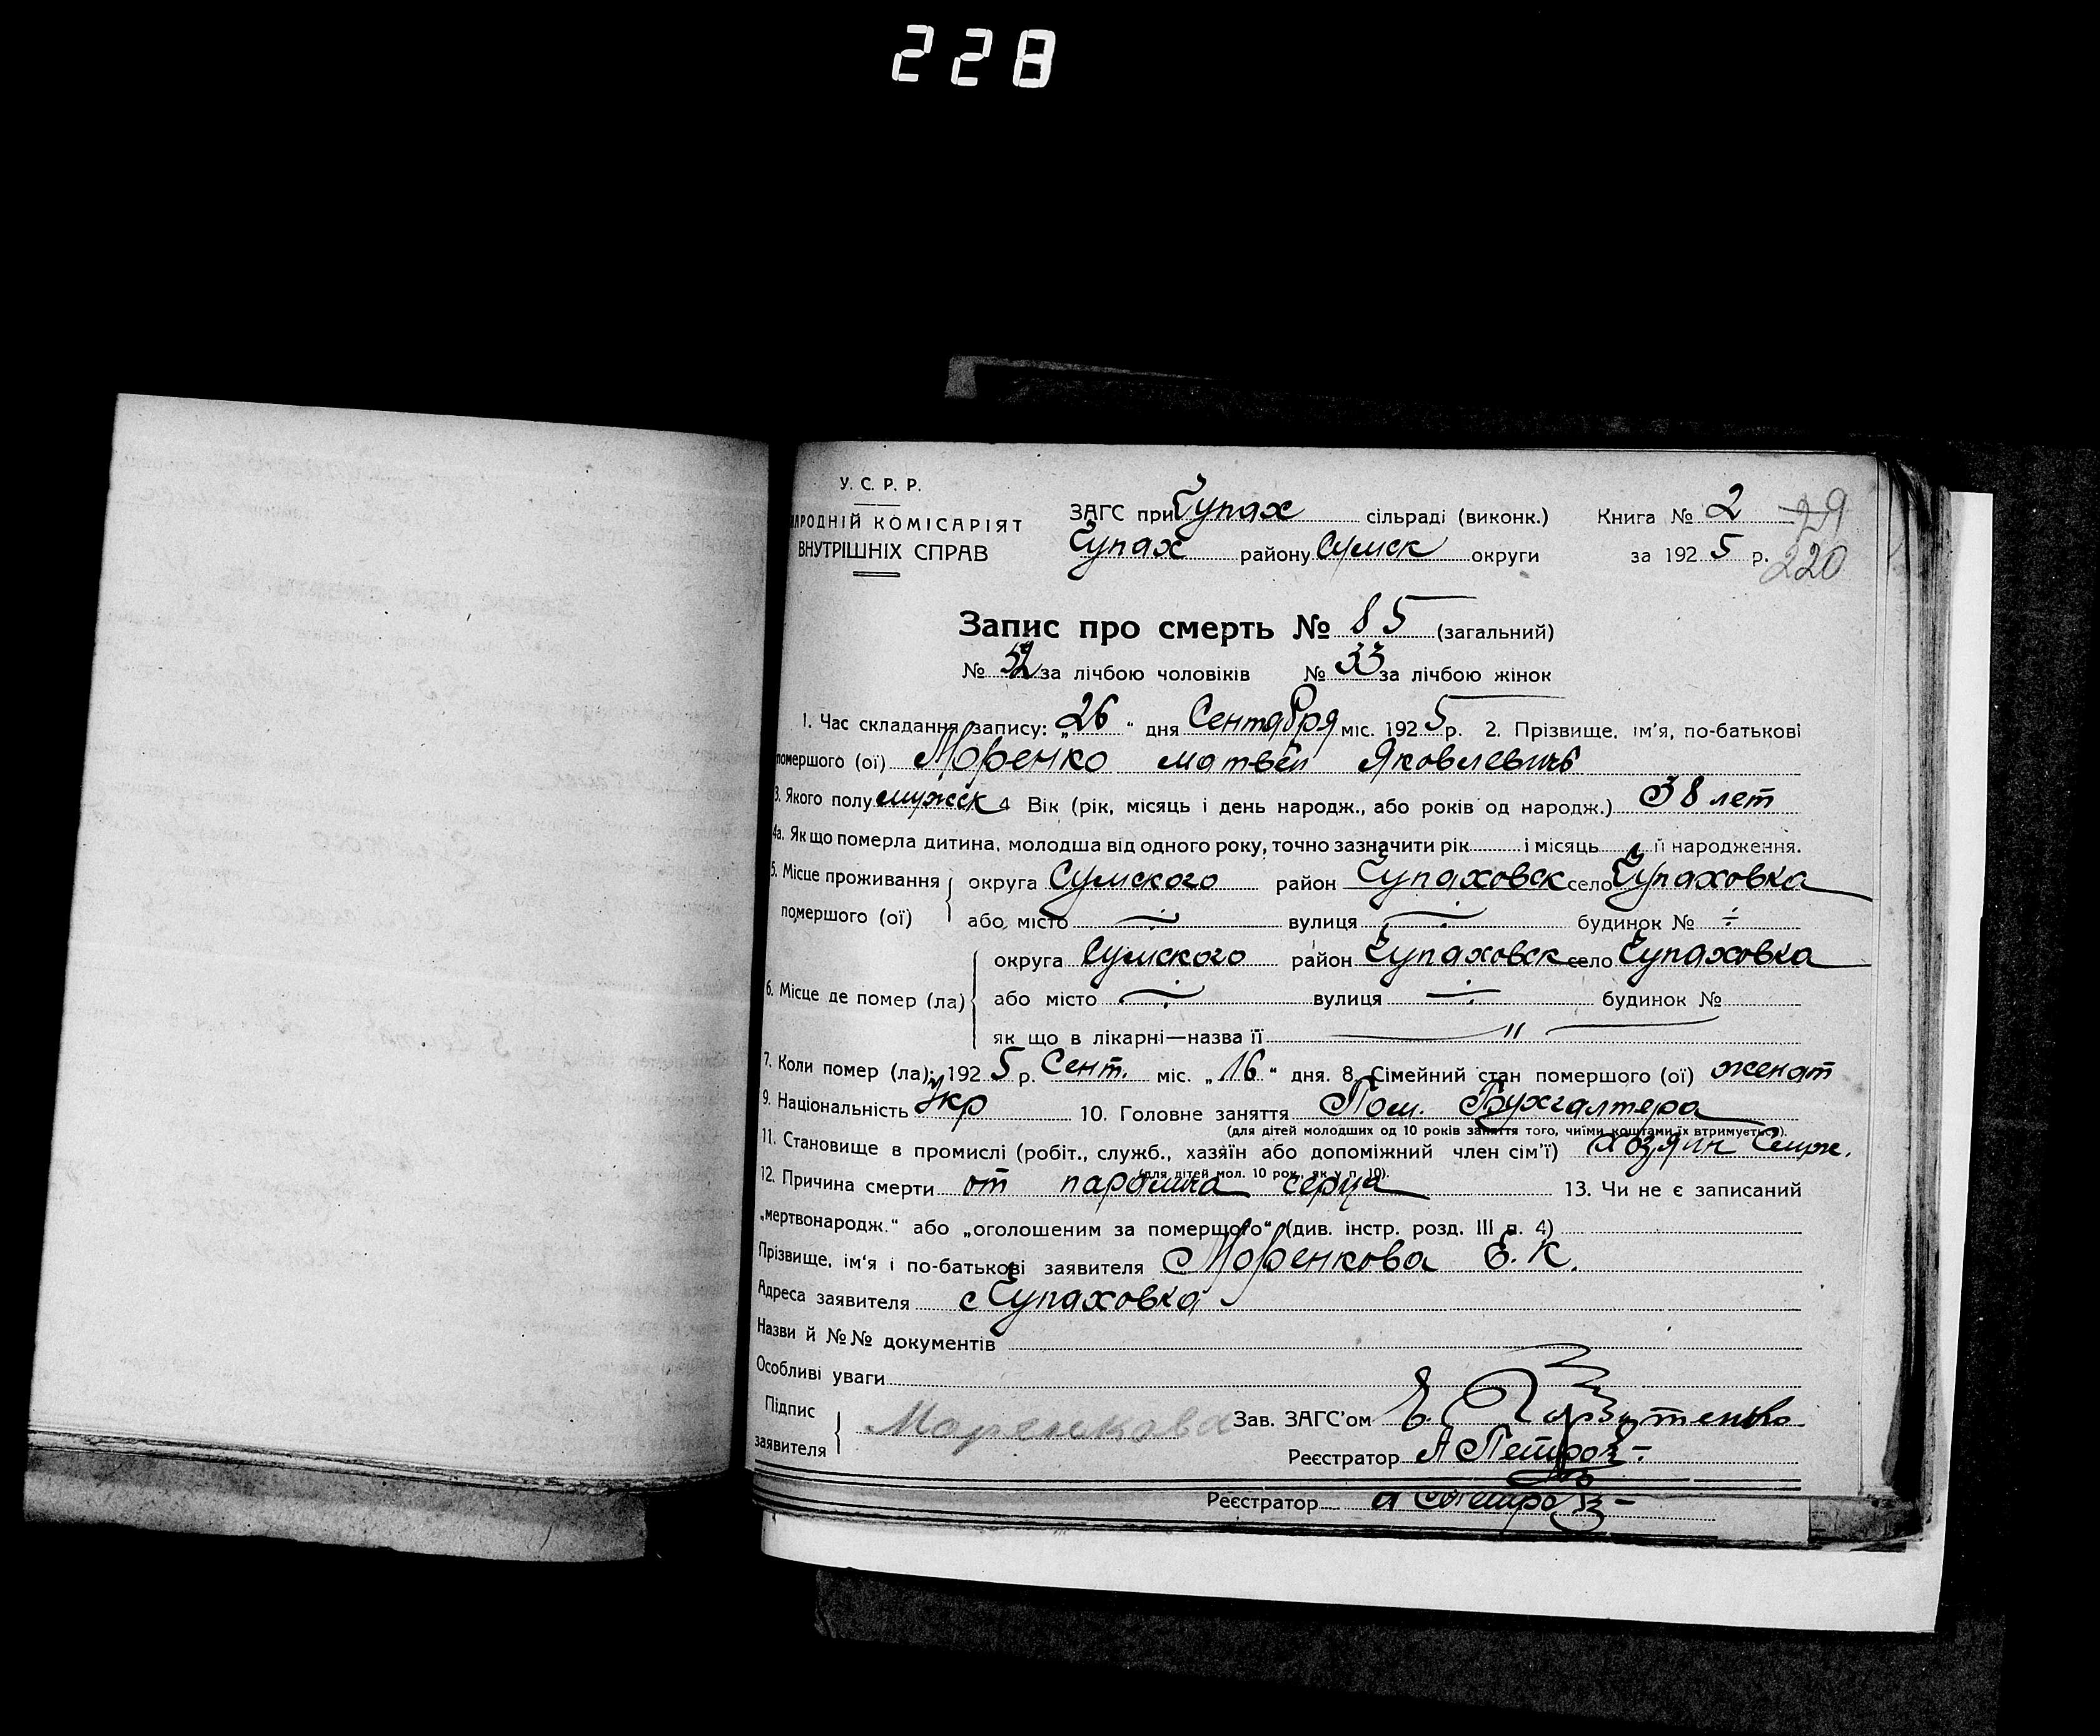 228
У. С. Р. Р.
НАРОДНІЙ КОМІСАРІЯТ
ВНУТРІШНІХ СПРАВ
ЗАГС при Чупах сільраді (виконк.)
Чупах району Сумск округи
Книга № 2
за 1925 р.
79
220
Запис про смерть № 85 (загальний)
№ 52 за лічбою чоловіків № 33 за лічбою жінок
1. Час складання запису: „26" дня Сентября міс. 1925 р. 2. Прізвище, ім'я, по-батькові
помершого (ої) Моренко Матвей Яковлевичъ
3. Якого полу мужск 4 Вік (рік, місяць і день народж., або років од народж.) 38 лет
4а. Якщо померла дитина, молодша від одного року, точно зазначити рік і місяць її народження.
5. Місце проживання помершого (ої) округа Сумского район Чупаховск село Чупаховка
або місто ÷ вулиця ÷ будинок № ÷
6. Місце де помер (ла) округа Сумского район Чупаховск село Чупаховка
або місто ÷ вулиця ÷ будинок №
як що в лікарні—назва її — " —
7. Коли помер (ла): 1925 р. Сент. міс. „16" дня. 8. Сімейний стан помершого (ої) женат
9. Національність Укр 10. Головне заняття Пом. Бухгалтера
(для дітей молодших од 10 років заняття того, чиїми коштами їх втримується).
11. Становище в промислі (робіт., служб., хазяїн або допоміжний член сім'ї) хозяин
(для дітей мол. 10 рок., як у п. 10).
12. Причина смерти от серца 13. Чи не є записаний
„мертвонародж." або „оголошеним за померщого" (див. інстр. розд. III п. 4)
Прізвище, ім'я і по-батькові заявителя Моренкова Е. К.
Адреса заявителя с Чупаховка
Назви й №№ документів
Особливі уваги
Підпис заявителя Моренкова
Зав. ЗАГС'ом
Реєстратор А Петров
Реєстратор